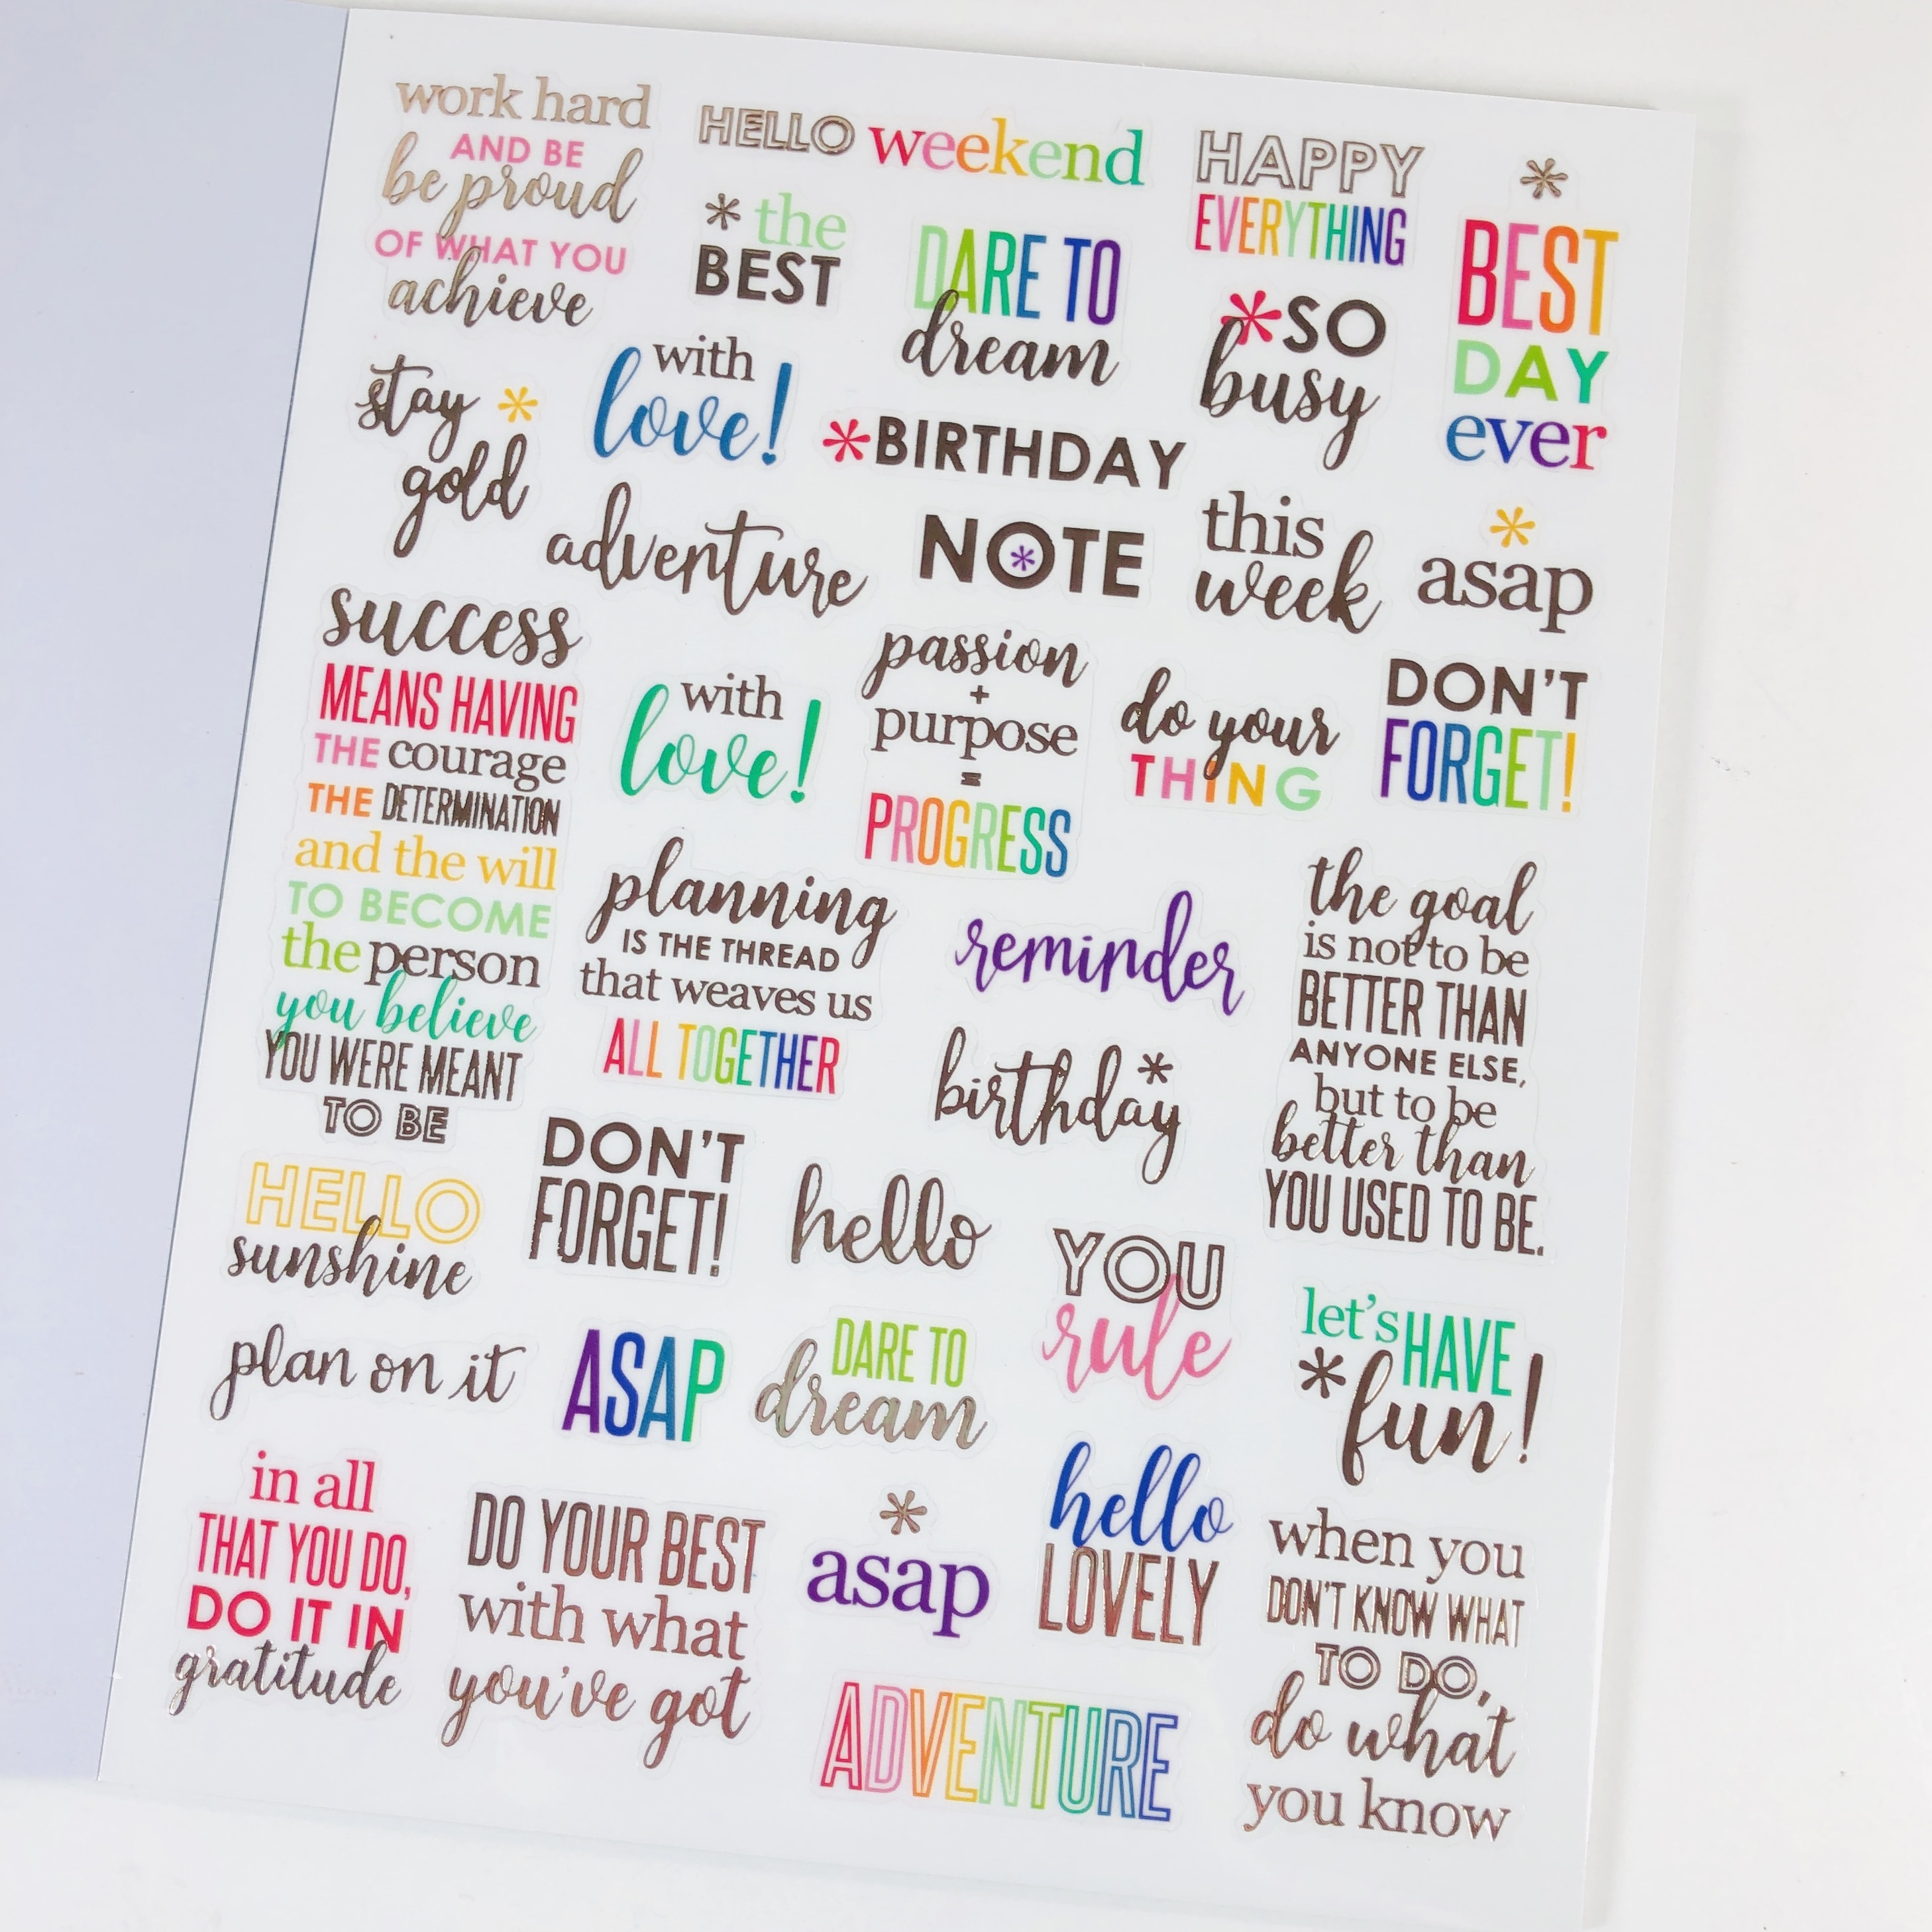 work hard
AND BE
be proud
OF WHAT YOU
achieve
HELLO weekend
HAPPY
EVERYTHING
* the
BEST
DARE TO
dream
*
BEST
DAY
ever
*SO
busy
stay *
gold
with
love!
*BIRTHDAY
adventure
NOTE
this
week
*
asap
success
MEANS HAVING
THE courage
THE DETERMINATION
and the will
TO BECOME
the person
you believe
YOU WERE MEANT
TO BE
with
love!
passion
+
purpose
=
PROGRESS
do your
THING
DON'T
FORGET!
planning
IS THE THREAD
that weaves us
ALL TOGETHER
reminder
the goal
is not to be
BETTER THAN
ANYONE ELSE,
but to be
better than
YOU USED TO BE.
birthday*
HELLO
sunshine
DON'T
FORGET!
hello
YOU
rule
let's HAVE
*fun!
plan on it
ASAP
DARE TO
dream
in all
THAT YOU DO,
DO IT IN
gratitude
DO YOUR BEST
with what
you've got
*
asap
hello
LOVELY
when you
DON'T KNOW WHAT
TO DO,
do what
you know
ADVENTURE